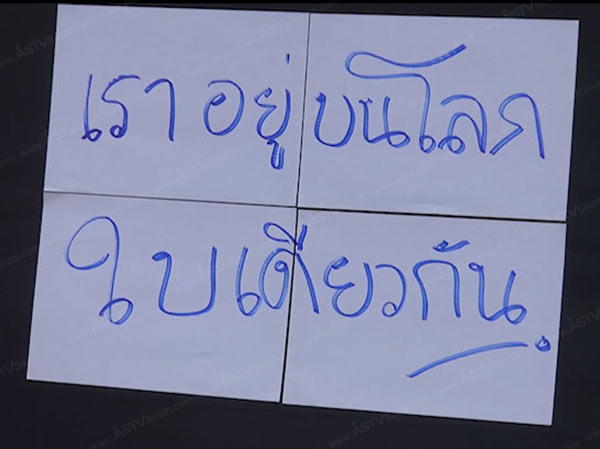 เราอยู่บนโลก
ใบเดียวกัน.
www.ASTVsouth.com